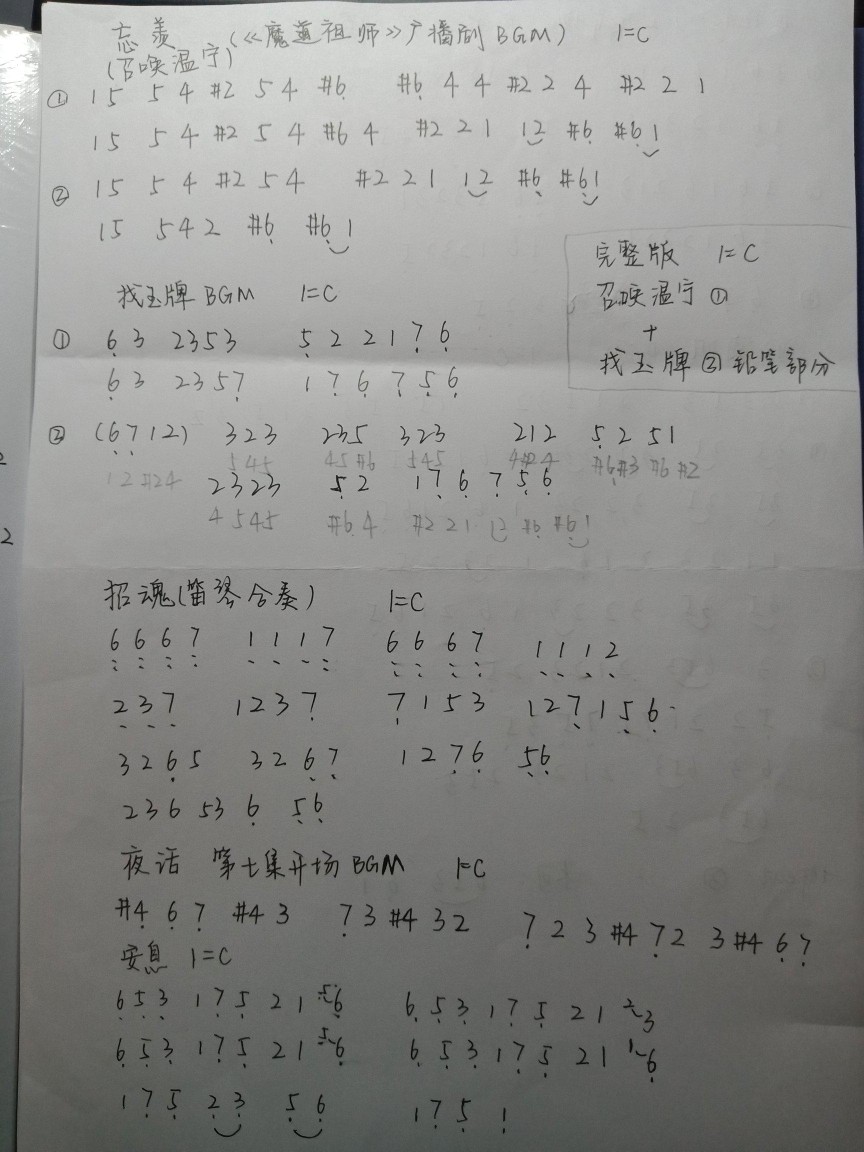 忘羡 (《魔道祖师》广播剧BGM) 1=C
(召唤温宁)
① 15 5 4 #2 5 4 #6̣ #6̣ 4 4 #2 2 4 #2 2 1
15 5 4 #2 5 4 #6 4 #2 2 1 12 #6̣ #6̣ 1
② 15 5 4 #2 5 4 #2 2 1 12 #6̣ #6̣1
15 542 #6̣ #6̣ 1
完整版 1=C
召唤温宁①
+
找玉牌②铅笔部分
找玉牌BGM 1=C
① 6̣ 3 2353 5̣ 2 2 1 7̣ 6̣
6̣ 3 2357̣ 1 7̣ 6̣ 7̣ 5̣ 6̣
② (6̣7̣12) 323 235 323 212 5̣ 2 51
12#24 545 45#6 545 4#24 #6̣#3 #6 #2
2323 5̣2 17̣ 6̣ 7̣ 5̣ 6̣
4545 #6̣ 4 #2 2 1 12 #6̣ #6̣1
招魂(笛琴合奏) 1=C
6 6 6 7 1 1 1 7 6 6 6 7 1 1 1 2
2̣ 3̣ 7̣ 1 2 3 7̣ 7̣ 1 5 3 1 2 7̣ 1 5̣ 6̣
3 2 6̣ 5 3 2 6̣ 7̣ 1 2 7̣ 6̣ 5̣6̣
236 53 6̣ 5̣6̣
夜话 第七集开场BGM 1=C
#4̣ 6̣ 7̣ #4 3 7̣ 3 #4 3 2 7̣ 2 3 #4 7̣ 2 3 #4 6̣ 7̣
安息 1=C
6̣ 5̣ 3̣ 1 7̣ 5̣ 2 1 5̣6̣ 6̣ 5̣ 3̣ 1 7̣ 5̣ 2 1 23
6̣ 5̣ 3̣ 1 7̣ 5̣ 2 1 5̣6̣ 6̣ 5̣ 3̣ 1 7̣ 5̣ 2 1 16̣
1 7̣ 5̣ 2̣ 3̣ 5̣ 6̣ 1 7̣ 5̣ 1̣